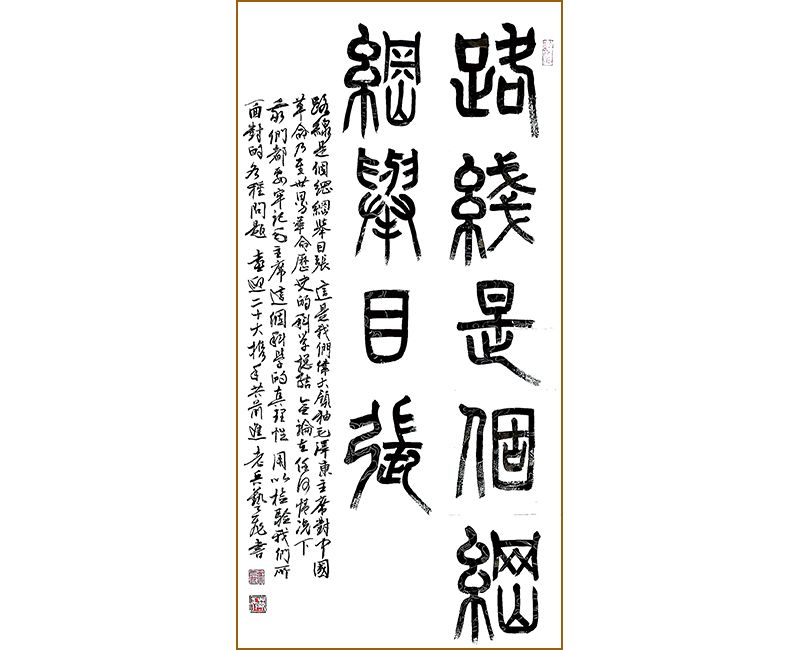 路綫是個綱
綱舉目張
路線是個綱綱舉目張 這是我們偉大領袖毛澤東主席對中國
革命乃至世界革命歷史的科学總結 無論在任何情况下
我們都要牢记毛主席這個科學的真理性 用以檢驗我们所
面對的各種問題 喜迎二十大携手共前進 老兵藝書